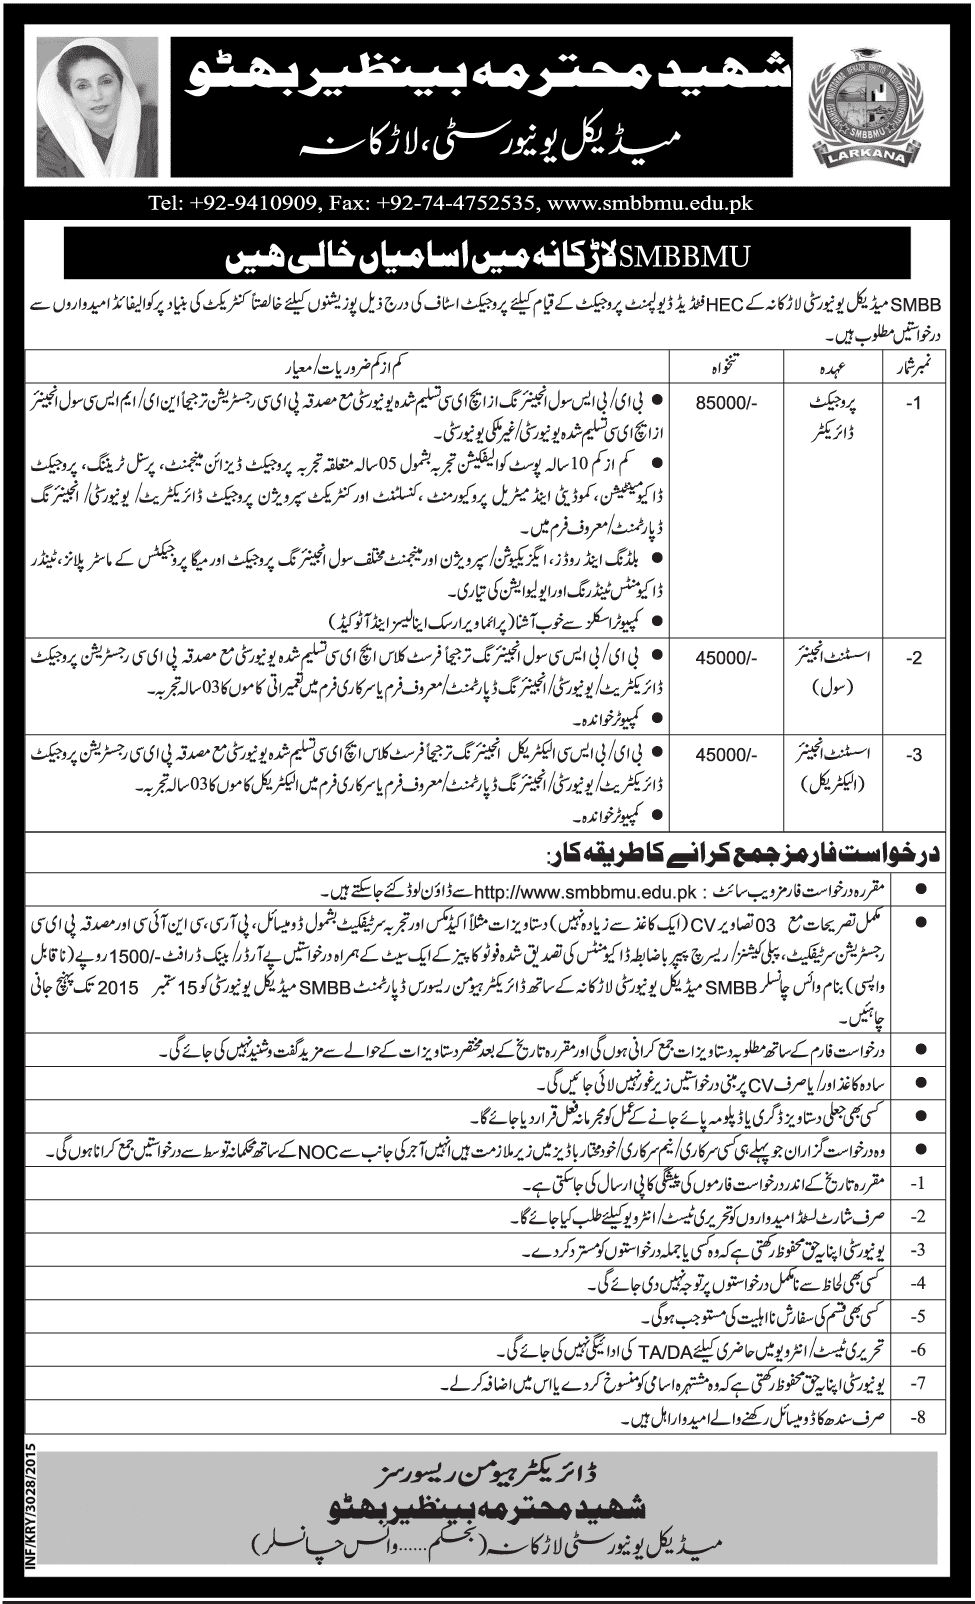 شھید محترمہ بینظیر بھٹو
میڈیکل یونیورسٹی، لاڑکانہ
SHAHEED MOHTARMA BENAZIR BHUTTO MEDICAL UNIVERSITY
SMBBMU
LARKANA
Tel: +92-9410909, Fax: +92-74-4752535, www.smbbmu.edu.pk
SMBBMU لاڑکانہ میں اسامیاں خالی ھیں
SMBB میڈیکل یونیورسٹی لاڑکانہ کے HEC فنڈیڈ ڈیولپمنٹ پروجیکٹ کے قیام کیلئے پروجیکٹ اسٹاف کی درج ذیل پوزیشنوں کیلئے خالصتاً کنٹریکٹ کی بنیاد پر کوالیفائڈ امیدواروں سے
درخواستیں مطلوب ہیں۔
نمبر شمار عہدہ تنخواہ کم از کم ضروریات/معیار
1- پروجیکٹ ڈائریکٹر 85000/-
● بی ای/بی ایس سول انجینئرنگ از ایچ ای سی تسلیم شدہ یونیورسٹی مع مصدقہ پی ای سی رجسٹریشن ترجیحاً این ای/ایم ایس سی سول انجینئر
از ایچ ای سی تسلیم شدہ یونیورسٹی/غیر ملکی یونیورسٹی۔
● کم از کم 10 سالہ پوسٹ کوالیفکیشن تجربہ بشمول 05 سالہ متعلقہ تجربہ پروجیکٹ ڈیزائن مینجمنٹ، پرسنل ٹریننگ، پروجیکٹ
ڈاکیومینٹیشن، کموڈیٹی اینڈ میٹریل پروکیورمنٹ، کنسلٹنٹ اور کنٹریکٹ سپرویژن پروجیکٹ ڈائریکٹریٹ/یونیورسٹی/انجینئرنگ
ڈپارٹمنٹ/معروف فرم میں۔
● بلڈنگ اینڈ روڈز، ایگزیکیوشن/سپرویژن اور مینجمنٹ مختلف سول انجینئرنگ پروجیکٹ اور میگا پروجیکٹس کے ماسٹر پلانز، ٹینڈر
ڈاکیومنٹس ٹینڈرنگ اور ایولیوایشن کی تیاری۔
● کمپیوٹر اسکلز سے خوب آشنا (پرائماویرا رسک اینالیسز اینڈ آٹو کیڈ)
2- اسسٹنٹ انجینئر (سول) 45000/-
● بی ای/بی ایس سی سول انجینئرنگ ترجیحاً فرسٹ کلاس ایچ ای سی تسلیم شدہ یونیورسٹی مع مصدقہ پی ای سی رجسٹریشن پروجیکٹ
ڈائریکٹریٹ/یونیورسٹی/انجینئرنگ ڈپارٹمنٹ/معروف فرم یا سرکاری فرم میں تعمیراتی کاموں کا 03 سالہ تجربہ۔
● کمپیوٹر خواندہ۔
3- اسسٹنٹ انجینئر (الیکٹریکل) 45000/-
● بی ای/بی ایس سی الیکٹریکل انجینئرنگ ترجیحاً فرسٹ کلاس ایچ ای سی تسلیم شدہ یونیورسٹی مع مصدقہ پی ای سی رجسٹریشن پروجیکٹ
ڈائریکٹریٹ/یونیورسٹی/انجینئرنگ ڈپارٹمنٹ/معروف فرم یا سرکاری فرم میں الیکٹریکل کاموں کا 03 سالہ تجربہ۔
● کمپیوٹر خواندہ۔
درخواست فارمز جمع کرانے کا طریقہ کار:
● مقررہ درخواست فارمز ویب سائٹ : http://www.smbbmu.edu.pk سے ڈاؤن لوڈ کئے جا سکتے ہیں۔
● مکمل تصریحات مع 03 تصاویر CV (ایک کاغذ سے زیادہ نہیں) دستاویزات مثلاً اکیڈمکس اور تجربہ سرٹیفکیٹ بشمول ڈومیسائل، پی آر سی، سی این آئی سی اور مصدقہ پی ای سی
رجسٹریشن سرٹیفکیٹ، پبلی کیشنز/ریسرچ پیپر باضابطہ ڈاکیومنٹس کی تصدیق شدہ فوٹو کاپیز کے ایک سیٹ کے ہمراہ درخواستیں پے آرڈر/بینک ڈرافٹ -/1500 روپے (ناقابل
واپسی) بنام وائس چانسلر SMBB میڈیکل یونیورسٹی لاڑکانہ کے ساتھ ڈائریکٹر ہیومن ریسورس ڈپارٹمنٹ SMBB میڈیکل یونیورسٹی کو 15 ستمبر 2015 تک پہنچ جانی
چاہئیں۔
● درخواست فارم کے ساتھ مطلوبہ دستاویزات جمع کرانی ہوں گی اور مقررہ تاریخ کے بعد مختصر دستاویزات کے حوالے سے مزید گفت و شنید نہیں کی جائے گی۔
● سادہ کاغذ اور/یا صرف CV پر مبنی درخواستیں زیر غور نہیں لائی جائیں گی۔
● کسی بھی جعلی دستاویز ڈگری یا ڈپلومہ پائے جانے کے عمل کو مجرمانہ فعل قرار دیا جائے گا۔
● وہ درخواست گزاران جو پہلے ہی کسی سرکاری/نیم سرکاری/خود مختار باڈیز میں زیر ملازمت ہیں انہیں آجر کی جانب سے NOC کے ساتھ محکمانہ توسط سے درخواستیں جمع کرانا ہوں گی۔
1- مقررہ تاریخ کے اندر درخواست فارموں کی پیشگی کاپی ارسال کی جا سکتی ہے۔
2- صرف شارٹ لسٹڈ امیدواروں کو تحریری ٹیسٹ/انٹرویو کیلئے طلب کیا جائے گا۔
3- یونیورسٹی اپنا یہ حق محفوظ رکھتی ہے کہ وہ کسی یا جملہ درخواستوں کو مسترد کر دے۔
4- کسی بھی لحاظ سے نامکمل درخواستوں پر توجہ نہیں دی جائے گی۔
5- کسی بھی قسم کی سفارش نااہلیت کی مستوجب ہو گی۔
6- تحریری ٹیسٹ/انٹرویو میں حاضری کیلئے TA/DA کی ادائیگی نہیں کی جائے گی۔
7- یونیورسٹی اپنا یہ حق محفوظ رکھتی ہے کہ وہ مشتہرہ اسامی کو منسوخ کر دے یا اس میں اضافہ کر لے۔
8- صرف سندھ کا ڈومیسائل رکھنے والے امیدوار اہل ہیں۔
ڈائریکٹر ہیومن ریسورسز
شھید محترمہ بینظیر بھٹو
میڈیکل یونیورسٹی لاڑکانہ (بحکم......وائس چانسلر)
INF/KRY/3028/2015